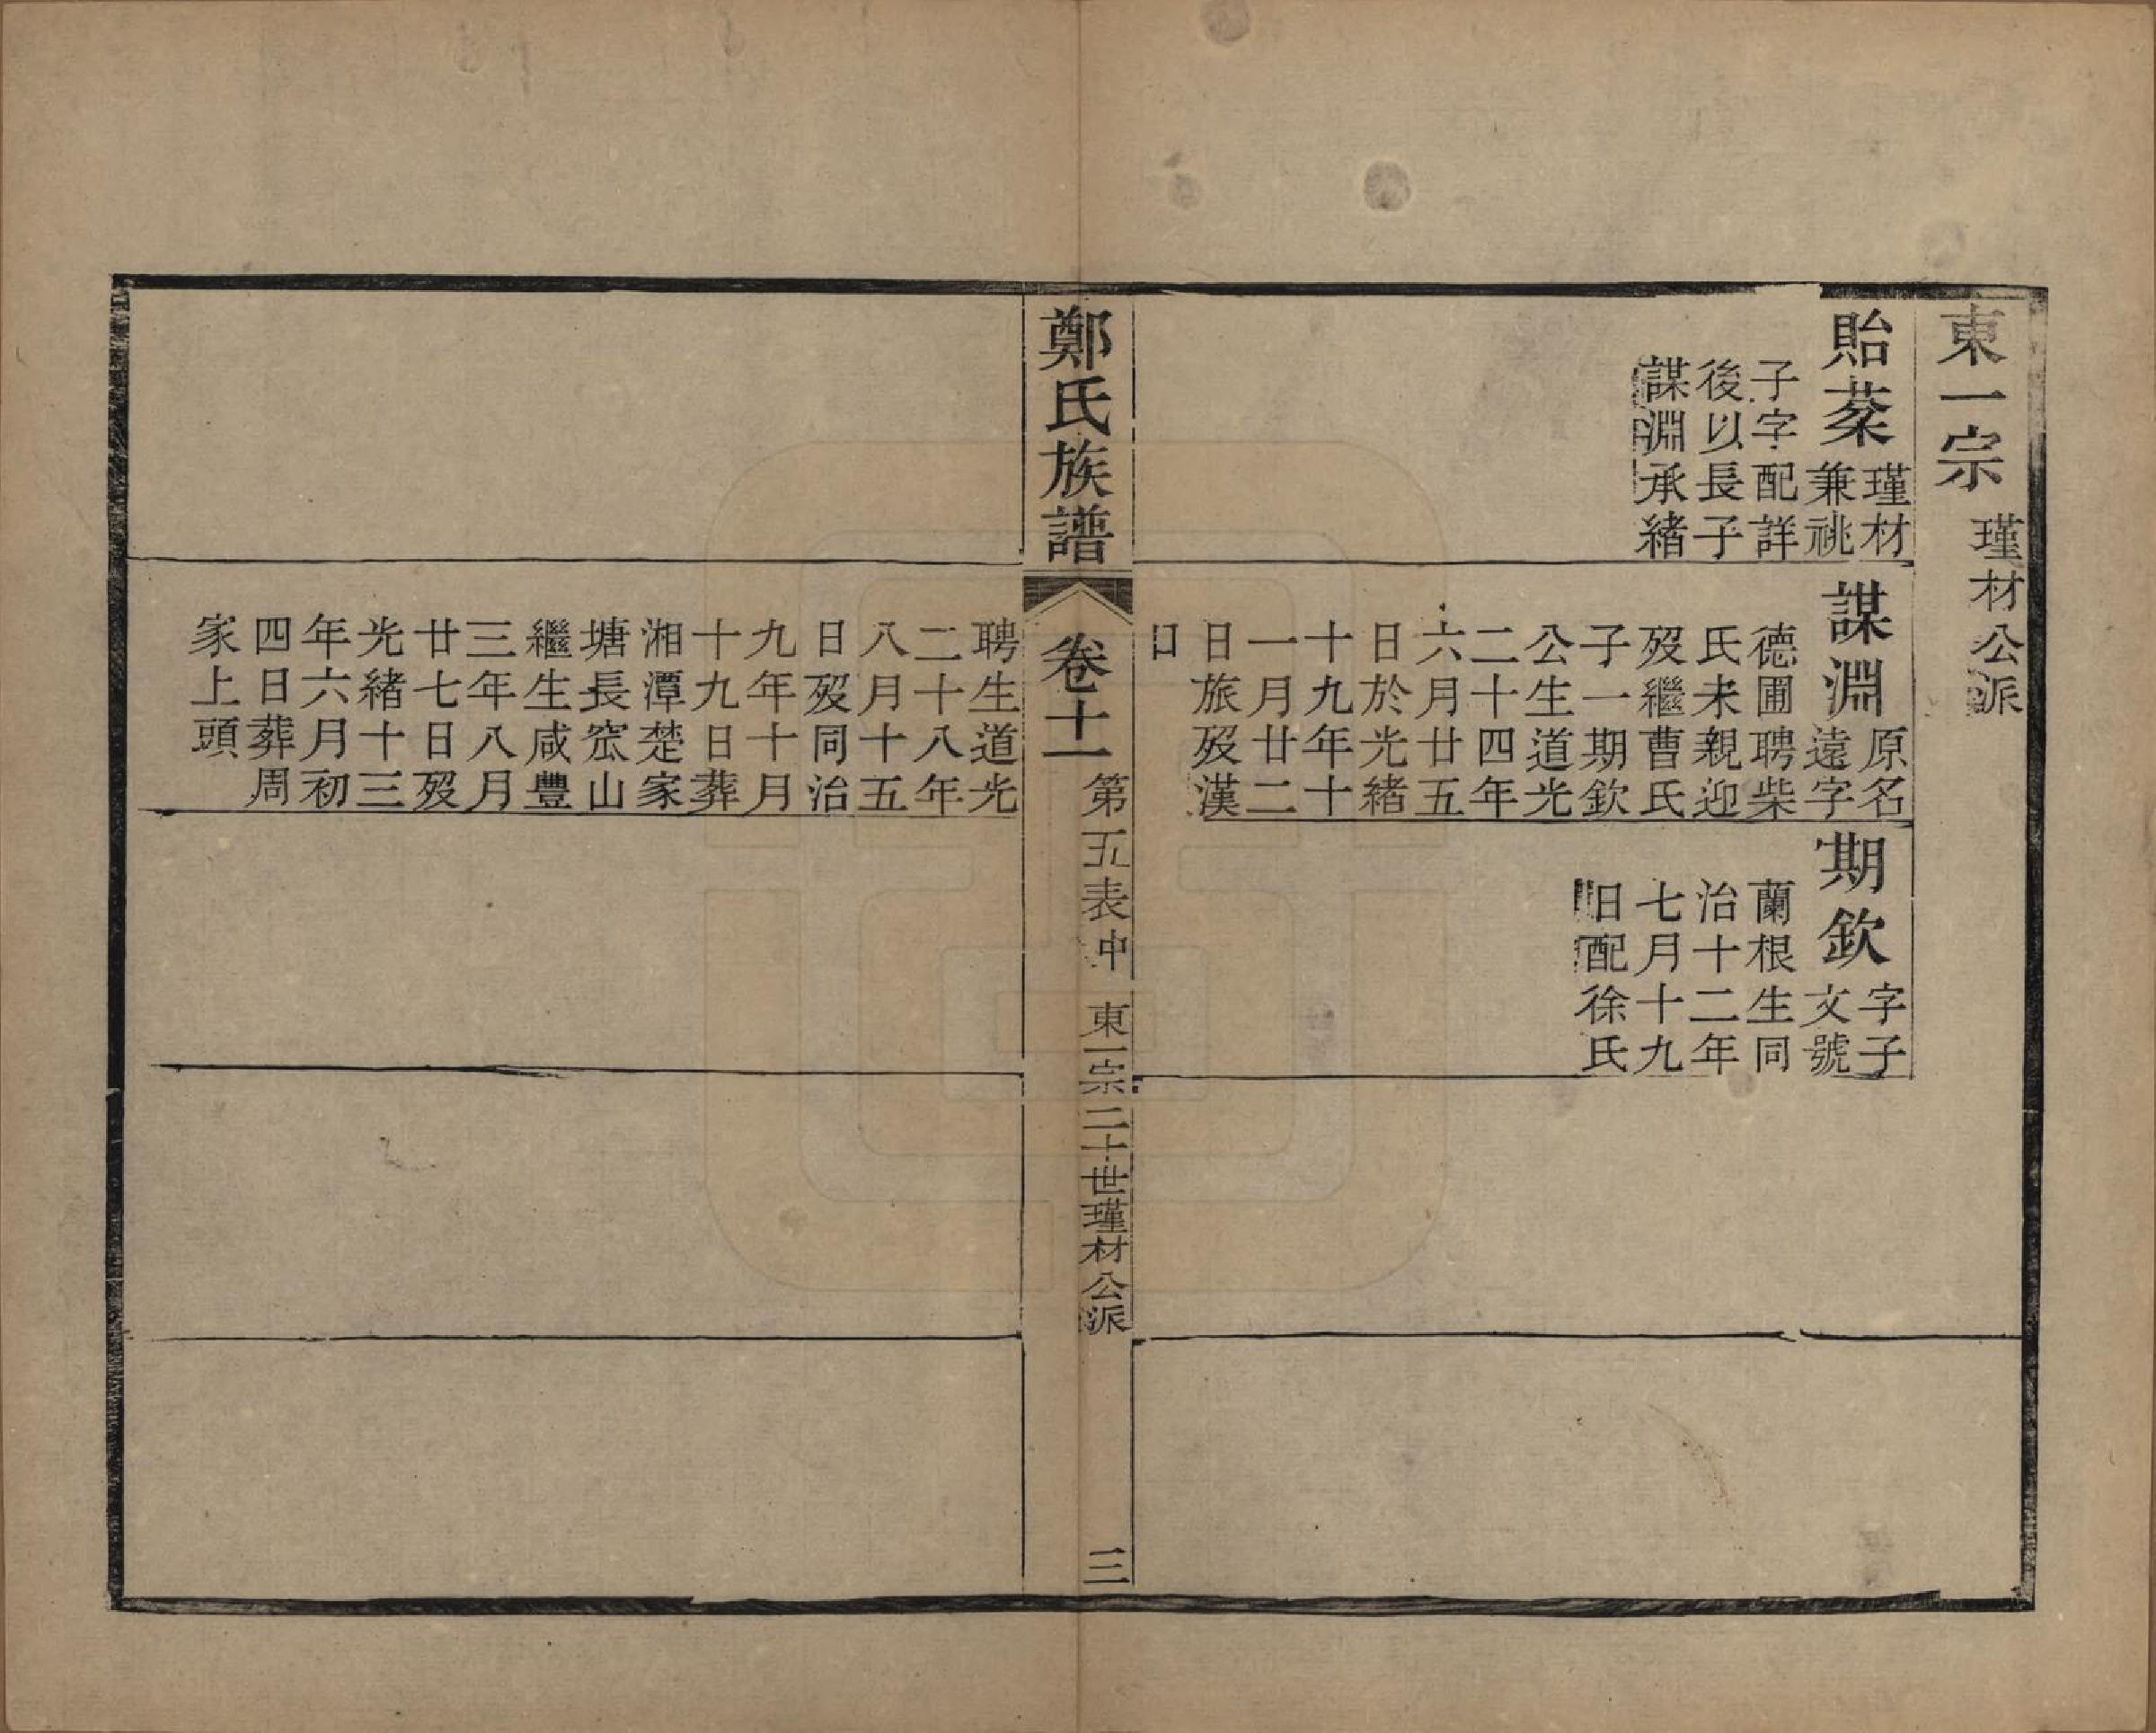 東一宗
瑾材公派
貽棻
瑾材
兼祧
子字配詳
後以長子
謀淵承緒
謀淵
原名
遠字
德圃聘柴
氏未親迎
歿繼曹氏
子一期欽
公生道光
二十四年
六月廿五
日於光緒
十九年十
一月廿二
日旅歿漢
口
期欽
字子
文號
蘭根生同
治十二年
七月十九
日配徐氏
鄭氏族譜
卷十一
第五表中
東一宗二十世瑾材公派
三
聘生道光
二十八年
八月十五
日歿同治
九年十月
十九日葬
湘潭楚家
塘長窊山
繼生咸豐
三年八月
廿七日歿
光緒十三
年六月初
四日葬周
家上頭